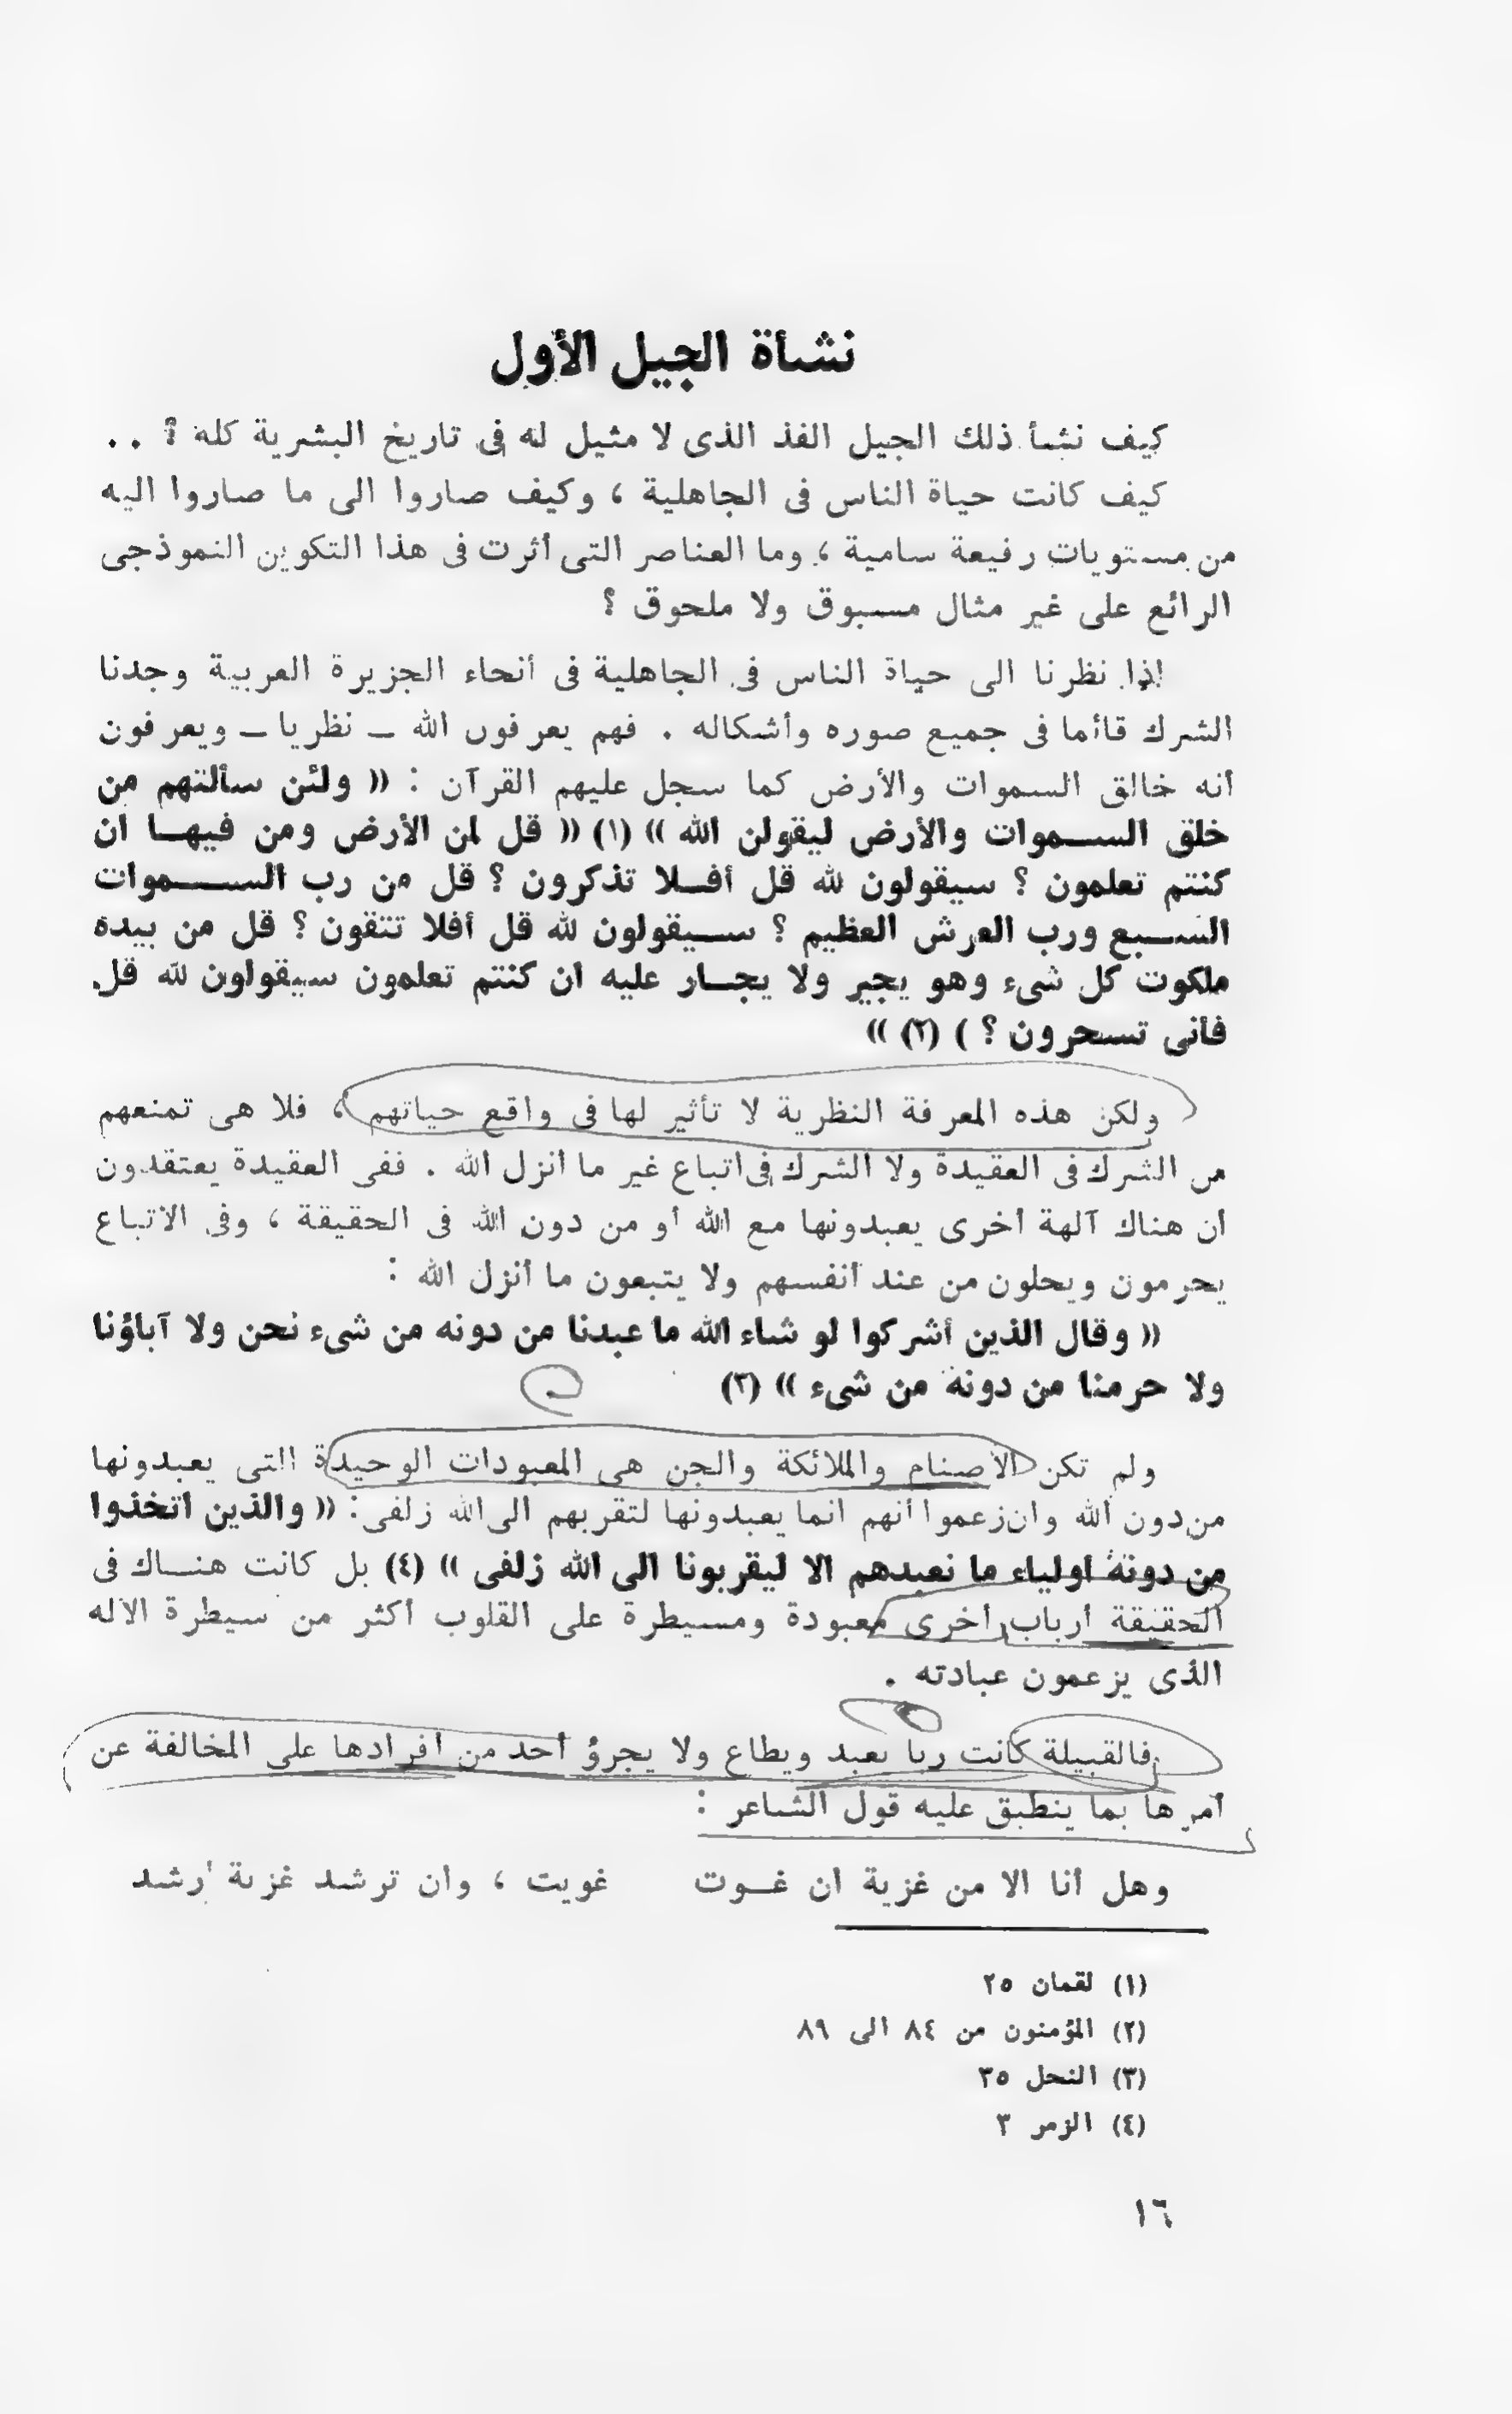 نشأة الجيل الأول
كيف نشأ ذلك الجيل الفذ الذى لا مثيل له فى تاريخ البشرية كله ؟ ..
كيف كانت حياة الناس فى الجاهلية ، وكيف صاروا الى ما صاروا اليه
من مستويات رفيعة سامية ، وما العناصر التى أثرت فى هذا التكوين النموذجى
الرائع على غير مثال مسبوق ولا ملحوق ؟
اذا نظرنا الى حياة الناس فى الجاهلية فى أنحاء الجزيرة العربية وجدنا
الشرك قائما فى جميع صوره وأشكاله . فهم يعرفون الله – نظريا – ويعرفون
أنه خالق السموات والأرض كما سجل عليهم القرآن : « ولئن سألتهم من
خلق السموات والأرض ليقولن الله » (١) « قل لمن الأرض ومن فيها ان
كنتم تعلمون ؟ سيقولون لله قل أفلا تذكرون ؟ قل من رب السموات
السبع ورب العرش العظيم ؟ سيقولون لله قل أفلا تتقون ؟ قل من بيده
ملكوت كل شىء وهو يجير ولا يجار عليه ان كنتم تعلمون سيقولون لله قل
فأنى تسحرون ؟ ) (٢) »
ولكن هذه المعرفة النظرية لا تأثير لها فى واقع حياتهم ، فلا هى تمنعهم
من الشرك فى العقيدة ولا الشرك فى اتباع غير ما أنزل الله . ففى العقيدة يعتقدون
أن هناك آلهة أخرى يعبدونها مع الله أو من دون الله فى الحقيقة ، وفى الاتباع
يحرمون ويحلون من عند أنفسهم ولا يتبعون ما أنزل الله :
« وقال الذين أشركوا لو شاء الله ما عبدنا من دونه من شىء نحن ولا آباؤنا
ولا حرمنا من دونه من شىء » (٣)
ولم تكن الأصنام والملائكة والجن هى المعبودات الوحيدة التى يعبدونها
من دون الله وان زعموا أنهم انما يعبدونها لتقربهم الى الله زلفى : « والذين اتخذوا
من دونه أولياء ما نعبدهم الا ليقربونا الى الله زلفى » (٤) بل كانت هناك فى
الحقيقة أرباب أخرى معبودة ومسيطرة على القلوب أكثر من سيطرة الاله
الذى يزعمون عبادته .
فالقبيلة كانت ربا يعبد ويطاع ولا يجرؤ أحد من أفرادها على المخالفة عن
أمرها بما ينطبق عليه قول الشاعر :
وهل أنا الا من غزية ان غوت غويت ، وان ترشد غزية أرشد
(١) لقمان ٢٥
(٢) المؤمنون من ٨٤ الى ٨٩
(٣) النحل ٣٥
(٤) الزمر ٣
١٦